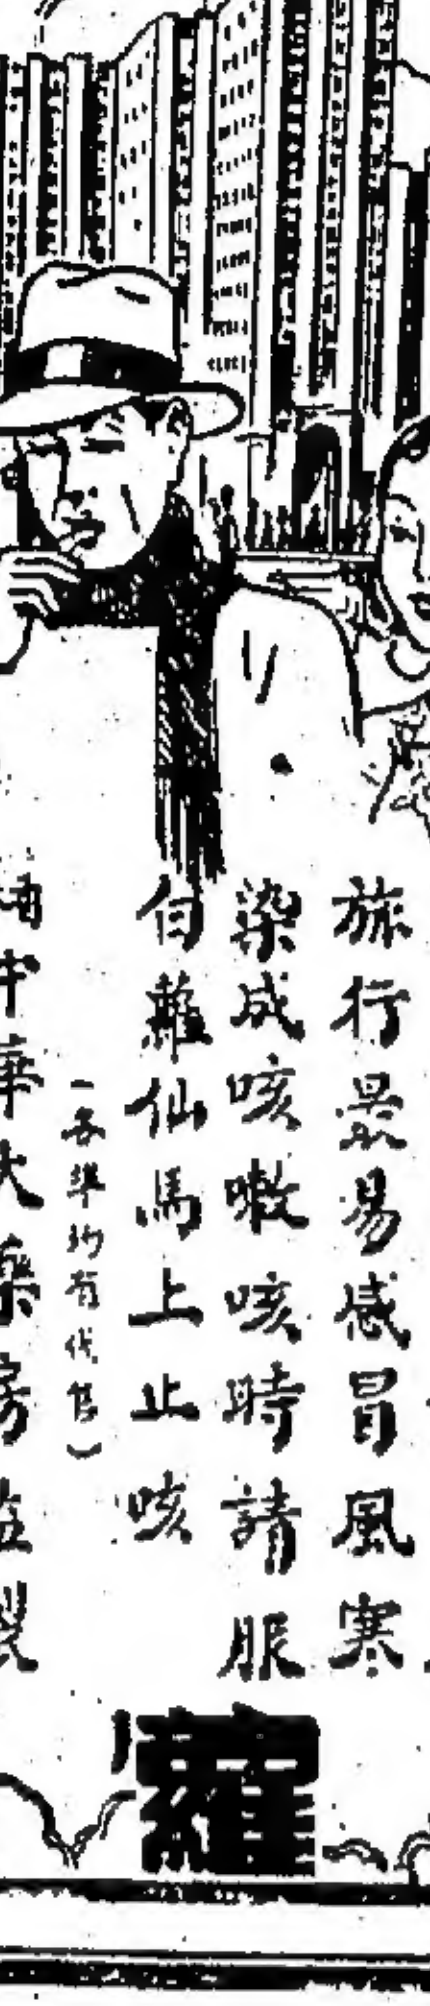 旅行最易感冒風寒
染成咳嗽咳時請服
白蘿仙馬上止咳
(各埠均有代售)
中華大藥房監製
蘿